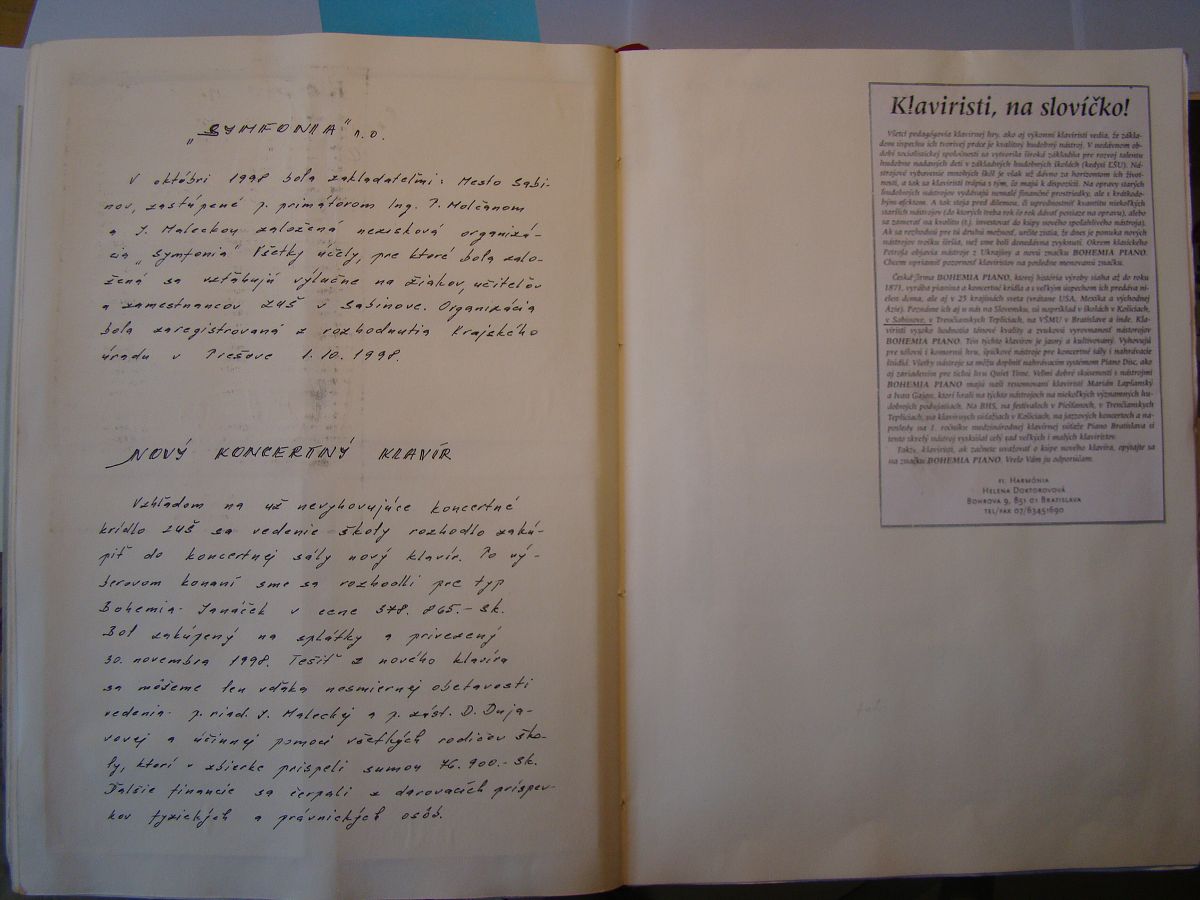 „SYMFONIA" n.o.
V októbri 1998 bola zakladateľmi: Mesto Sabi-
nov, zastúpené p. primátorom Ing. P. Molčanom
a J. Maleckou založená nezisková organizá-
cia „Symfonia" Všetky účely, pre ktoré bola zalo-
žená sa vzťahujú výlučne na žiakov, učiteľov
a zamestnancov ZUŠ v Sabinove. Organizácia
bola zaregistrovaná z rozhodnutia Krajského
úradu v Prešove 1.10.1998.
NOVÝ KONCERTNÝ KLAVÍR
Vzhľadom na už nevyhovujúce koncertné
krídlo ZUŠ sa vedenie školy rozhodlo zakú-
piť do koncertnej sály nový klavír. Po vý-
berovom konaní sme sa rozhodli pre typ
Bohemia- Janáček v cene 378. 865.- Sk.
Bol zakúpený na splátky a privezený
30. novembra 1998. Tešiť z nového klavíra
sa môžeme len vďaka nesmiernej obetavosti
vedenia- p. riad. J. Maleckej a p. zást. D. Duja-
vovej a účinnej pomoci všetkých rodičov ško-
ly, ktorí v zbierke prispeli sumou 76. 900.- Sk.
Ďalšie financie sa čerpali z darovacích príspev-
kov fyzických a právnických osôb.
Klaviristi, na slovíčko!
Všetci pedagógovia klavírnej hry, ako aj výkonní klaviristi vedia, že zákla-
dom úspechu ich tvorivej práce je kvalitný hudobný nástroj. V nedávnom ob-
dobí socialistickej spoločnosti sa vytvorila široká základňa pre rozvoj talentu
hudobne nadaných detí v základných hudobných školách (kedysi ĽŠU). Ná-
strojové vybavenie mnohých škôl je však už dávno za horizontom ich život-
nosti, a tak sa klaviristi trápia s tým, že majú k dispozícii. Na opravy starých
hudobných nástrojov vydávajú nemalé finančné prostriedky, ale s krátkodo-
bým efektom. A tak stoja pred dilemou, či uprednostniť kvantitu niekoľkých
starších nástrojov (do ktorých treba rok čo rok dávať peniaze na opravu), alebo
sa zamerať na kvalitu (t.j. investovať do kúpy nového spoľahlivého nástroja).
Ak sa rozhodnú pre tú druhú možnosť, určite zistia, že dnes je ponuka nových
nástrojov trošku širšia, než sme boli donedávna zvyknutí. Okrem klasického
Petrofa objavia nástroje z Ukrajiny a novú značku BOHEMIA PIANO.
Chcem upriamiť pozornosť klaviristov na posledne menovanú značku.
Česká firma BOHEMIA PIANO, ktorej história výroby siaha až do roku
1871, vyrába pianína a koncertné krídla a s veľkým úspechom ich predáva ni-
elen doma, ale aj v 25 krajinách sveta (vrátane USA, Mexika a východnej
Ázie). Poznáme ich aj u nás na Slovensku, sú napríklad v školách v Košiciach,
v Sabinove, v Trenčianskych Tepliciach, na VŠMU v Bratislave a inde. Kla-
viristi vysoko hodnotia tónové kvality a zvukovú vyrovnanosť nástrojov
BOHEMIA PIANO. Tón týchto klavírov je jasný a kultivovaný. Vyhovujú
pre sólovú i komornú hru, špičkové nástroje pre koncertné sály i nahrávacie
štúdiá. Všetky nástroje sa môžu doplniť nahrávacím systémom Piano Disc, ako
aj zariadením pre tichú hru Quiet Time. Veľmi dobré skúsenosti s nástrojmi
BOHEMIA PIANO majú naši renomovaní klaviristi Marián Lapšanský
a Ivan Gajan, ktorí hrali na týchto nástrojoch na niekoľkých významných hu-
dobných podujatiach. Na BHS, na festivaloch v Piešťanoch, v Trenčianskych
Tepliciach, na klavírnych súťažiach v Košiciach, na jazzových koncertoch a na-
posledy na 1. ročníku medzinárodnej klavírnej súťaže Piano Bratislava si
tento skvelý nástroj vyskúšal celý rad veľkých i malých klaviristov.
Takže, klaviristi, ak začnete uvažovať o kúpe nového klavíra, opýtajte sa
na značku BOHEMIA PIANO. Vrelo Vám ju odporúčam.
FI. HARMÓNIA
HELENA DOKTOROVOVÁ
BOHROVA 9, 851 01 BRATISLAVA
TEL/FAX 07/63451690